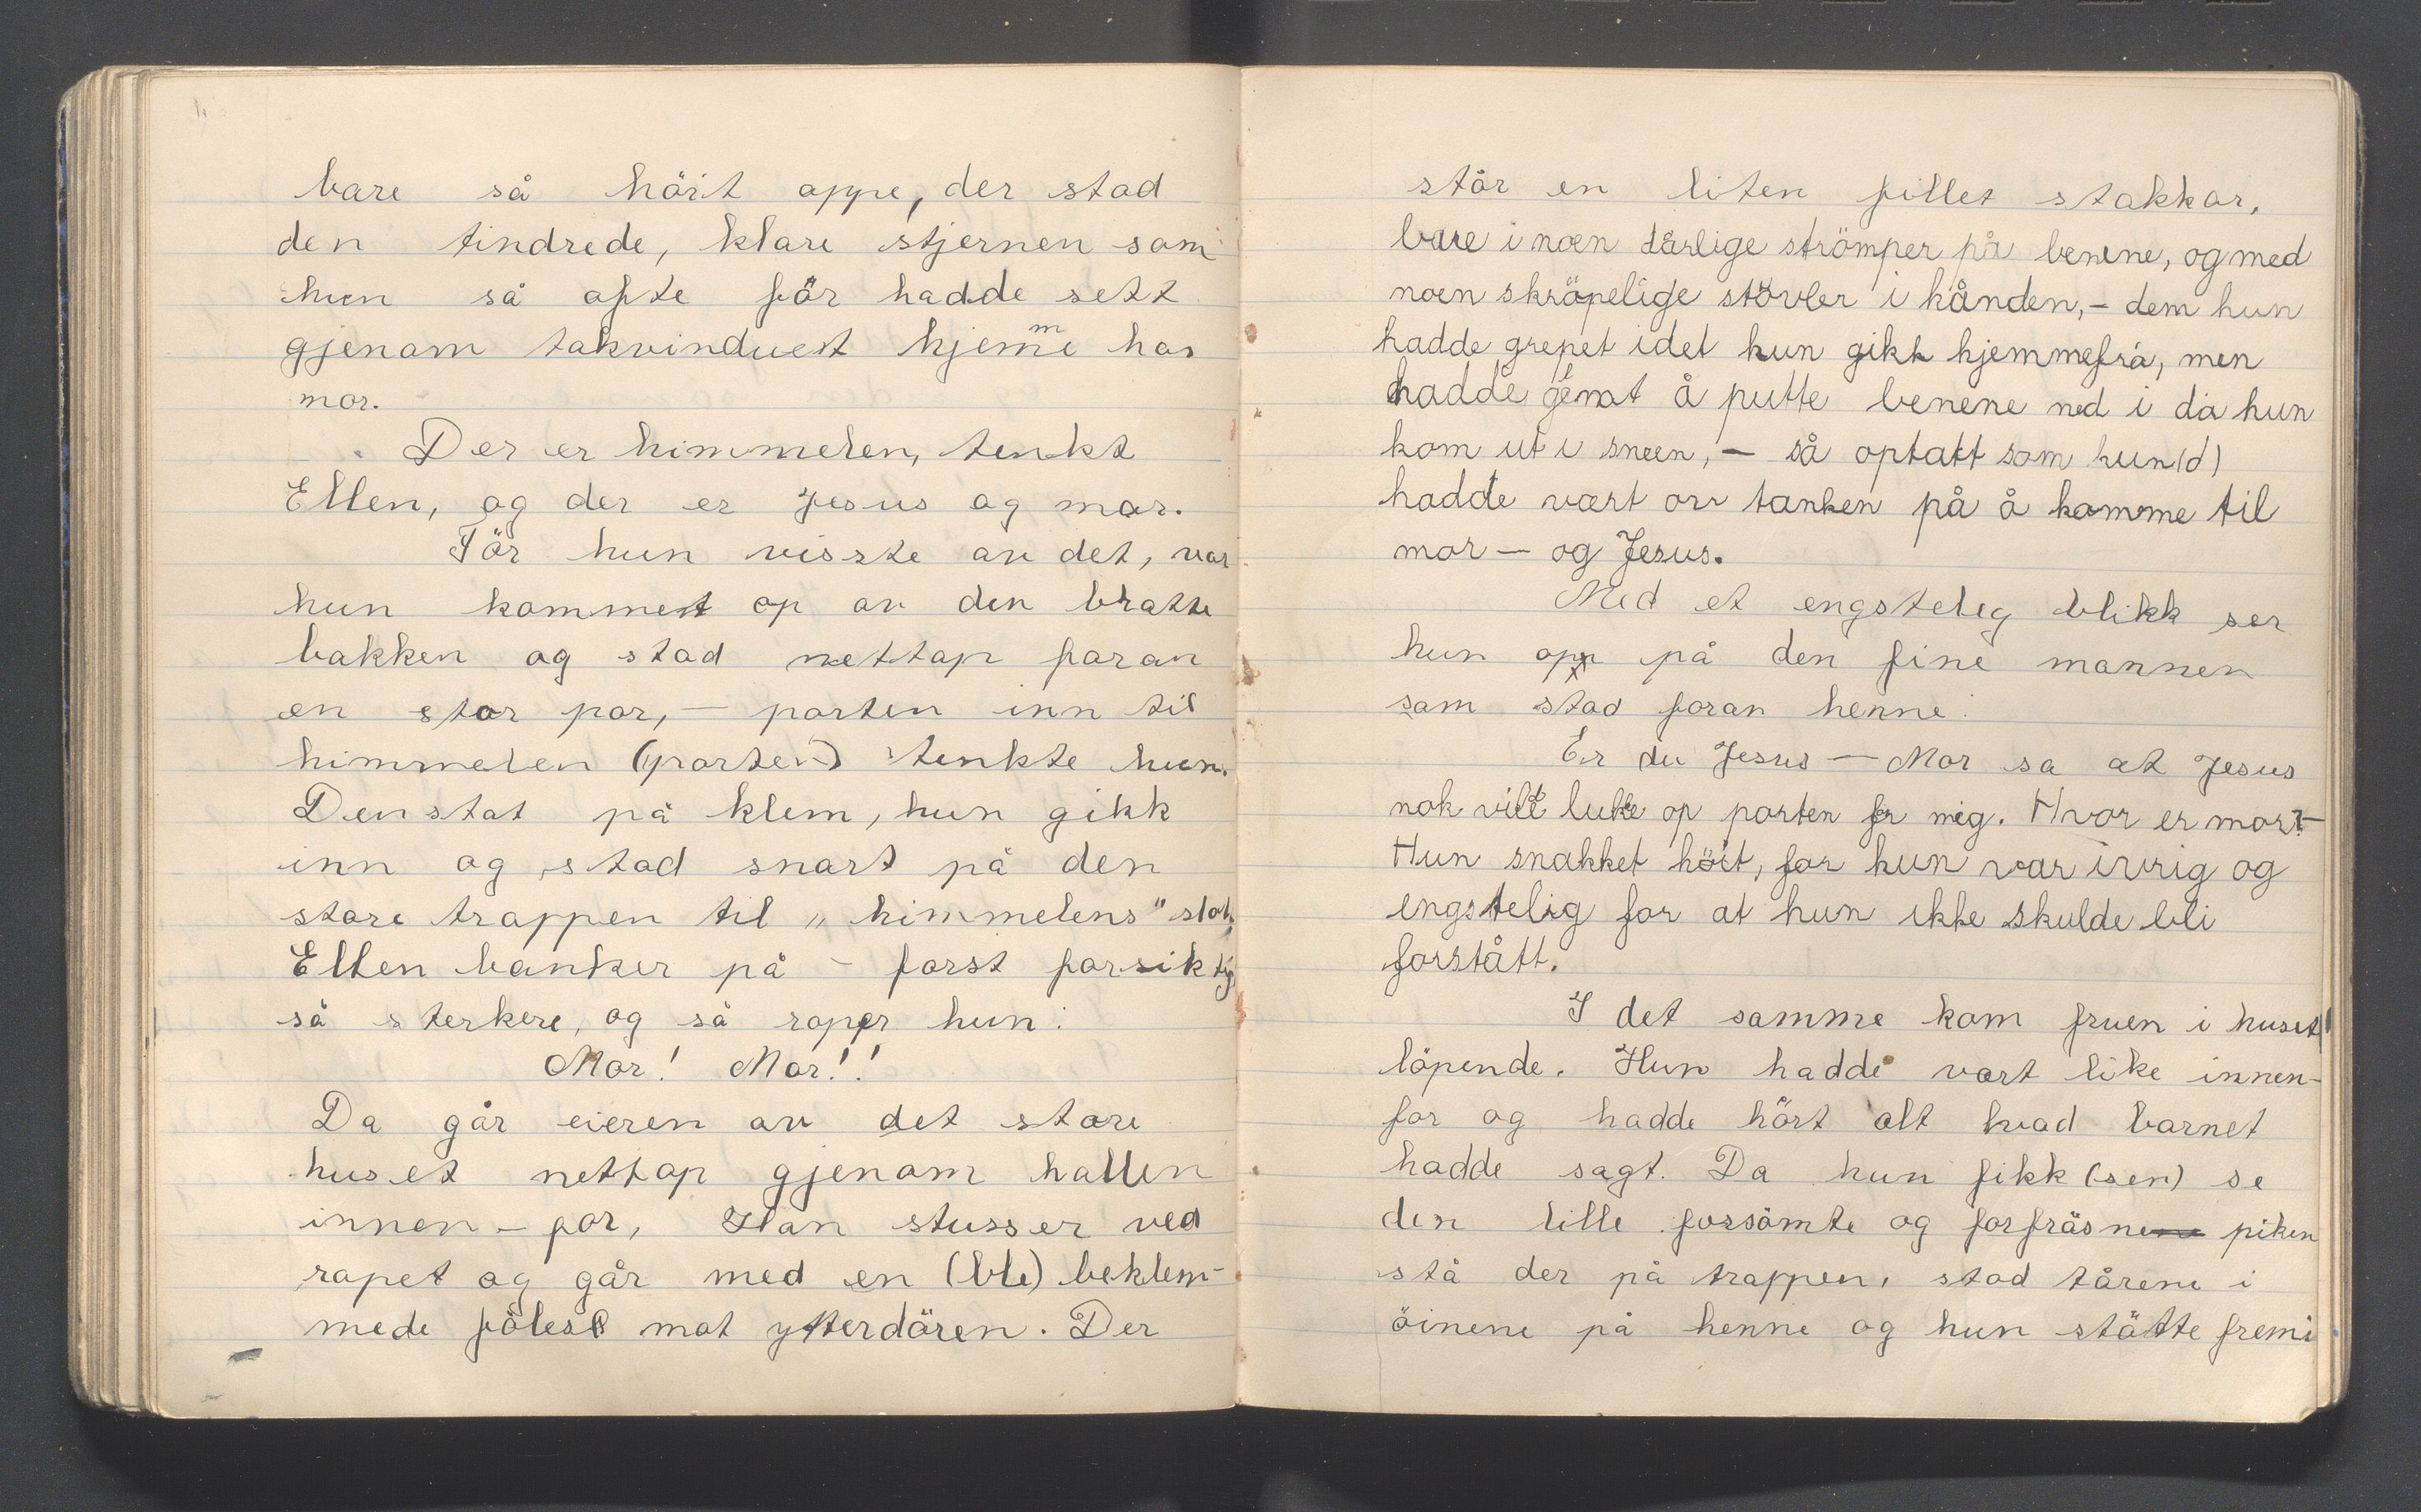 bare så höit oppe, der stod
den tindrede, klare stjernen som
hun så ofteför hadde sett
gjenom takvinduet hjemme hos
mor.
Der er himmelen, tenkt
Ellen, og der er Jesus og mor.
För hun visste av det, var
hun kommet op av den bratte
bakken og stod nettop foran
en stor por, – porten inn til
himmelen (porten) tenkte hun.
Den stot på klem, hun gikk
inn og stod snart på den
store trappen til „himmelens" slot.
Ellen banker på – forst forsiktig
så sterkere, og så roper hun:
Mor! Mor!!
Da går eieren av det store
huset nettop gjenom hallen
innen-for, Han stusser ved
ropet og går med en (ble) beklem-
mede föles mot ytterdören. Der
står en liten fillet stakkar,
bare i noen dårlige strömper på benene, og med
noen skröpelige stövler i hånden, – dem hun
hadde grepet idet hun gikk hjemmefrå, men
hadde glemt å putte benene ned i då hun
kom ut i sneen, – så optatt som hun (d)
hadde vært av tanken på å komme til
mor – og Jesus.
Med et engsteleg blikk ser
hun opp på den fine mannen
som stod foran henne.
Er du Jesus – Mor sa at Jesus
nok vilt lukke op porten for mig. Hvor er mor? –
Hun snakket höit, for hun var ivrig og
engstelig for at hun ikke skulde bli
forstått.
I det samme kom fruen i huset
löpende. Hun hadde vært like innen-
for og hadde hört alt hvad barnet
hadde sagt. Da hun fikk (sen) se
den lille forsömte og forfråsne piken
stå der på trappen, stod tårene i
öinene på henne og hun stötte frem i